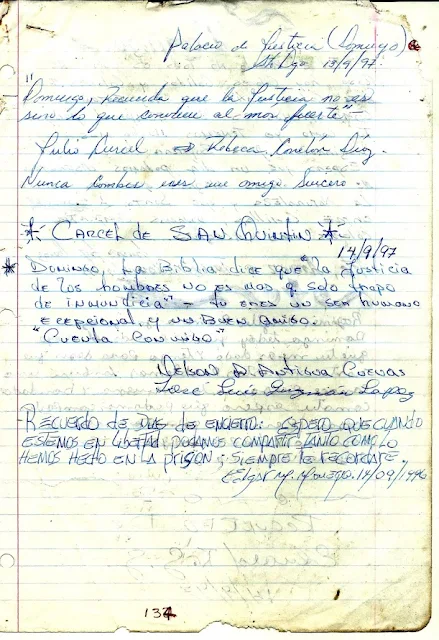 Palacio de Justicia (Domingo)
Sto. Dgo. 13/9/97.
"Domingo, Recuerda que la Justicia no es
sino lo que conviene al mas fuerte" -
Julio Curiel Rebeca Díaz.
Nunca Cambies eres un amigo Sincero.
* CARCEL de SAN QUINTIN *
14/9/97
* DOMINGO, La Biblia dice que "la Justicia
de los hombres no es mas q. solo trapo
de inmundicia" - tu eres un ser humano
excepcional y un Buen Amigo.
"Cuenta Conmigo"
Nelson D. Antigua Cuevas
José Luis Guzmán Lopez
-RECUERDO DE DIAS DE ENCIERRO: ESPERO QUE CUANDO
ESTEMOS EN LIBERTAD PODAMOS COMPARTIR TANTO COMO LO
HEMOS HECHO EN LA PRISION; SIEMPRE TE RECORDARE.
Edgar M. 14/09/1996
134